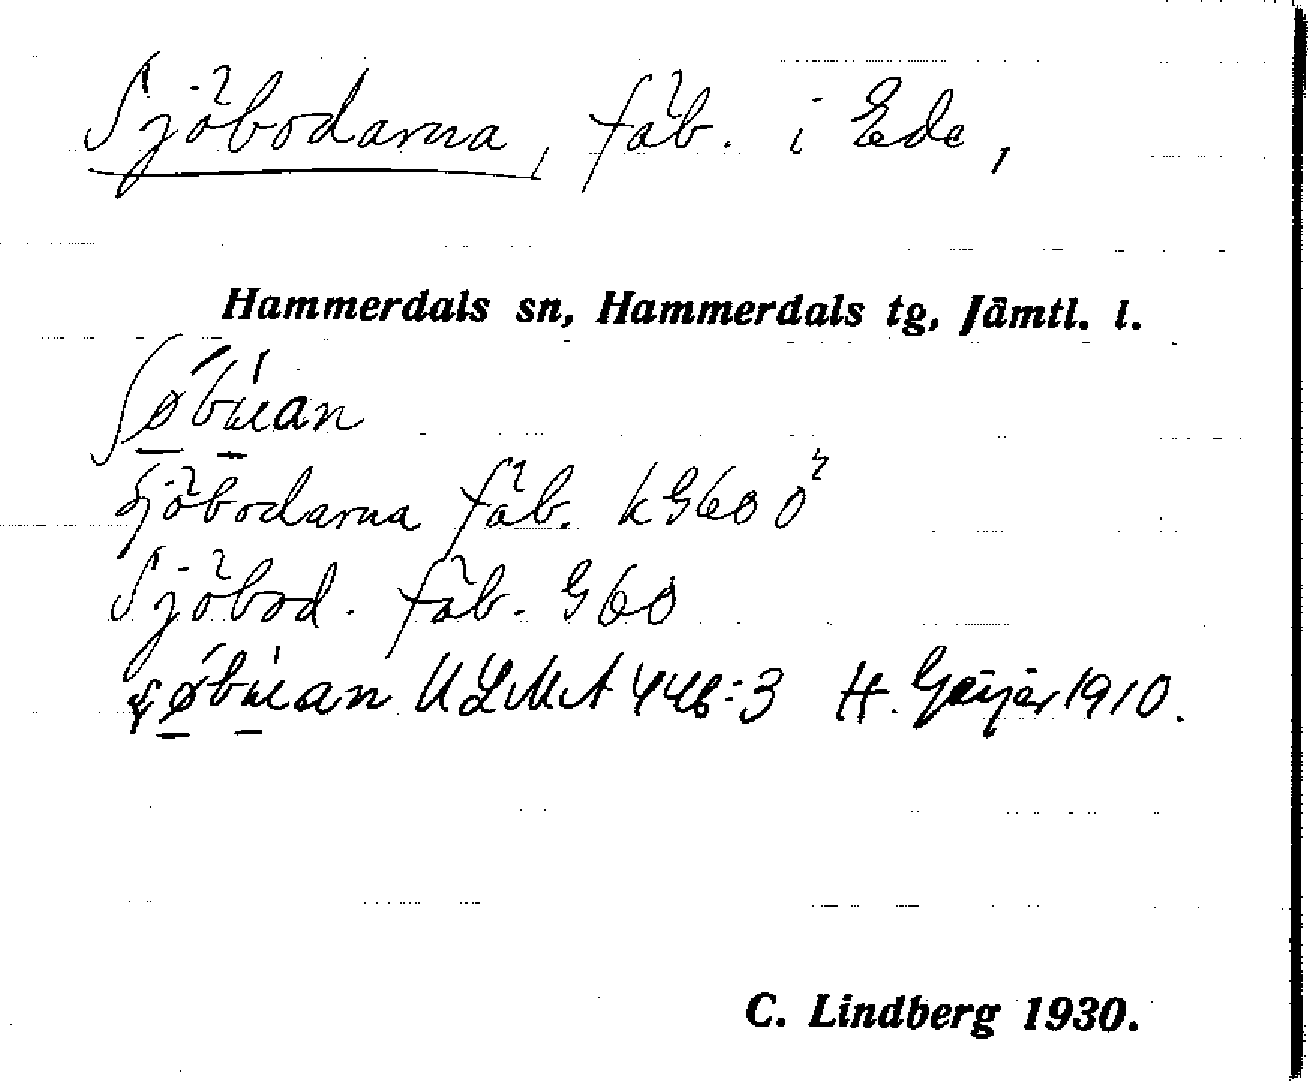 Sjöbodarna, fäb. i Ede,
Hammerdals sn, Hammerdals tg, Jämtl. l.
ʃǿ̲bu̲̍an
Sjöbodarna fäb. kG60 ö
Sjöbod. fäb. G60
ʂǿ̲bu̲̍an ULMA 446:3 H. Geijer 1910.
C. Lindberg 1930.